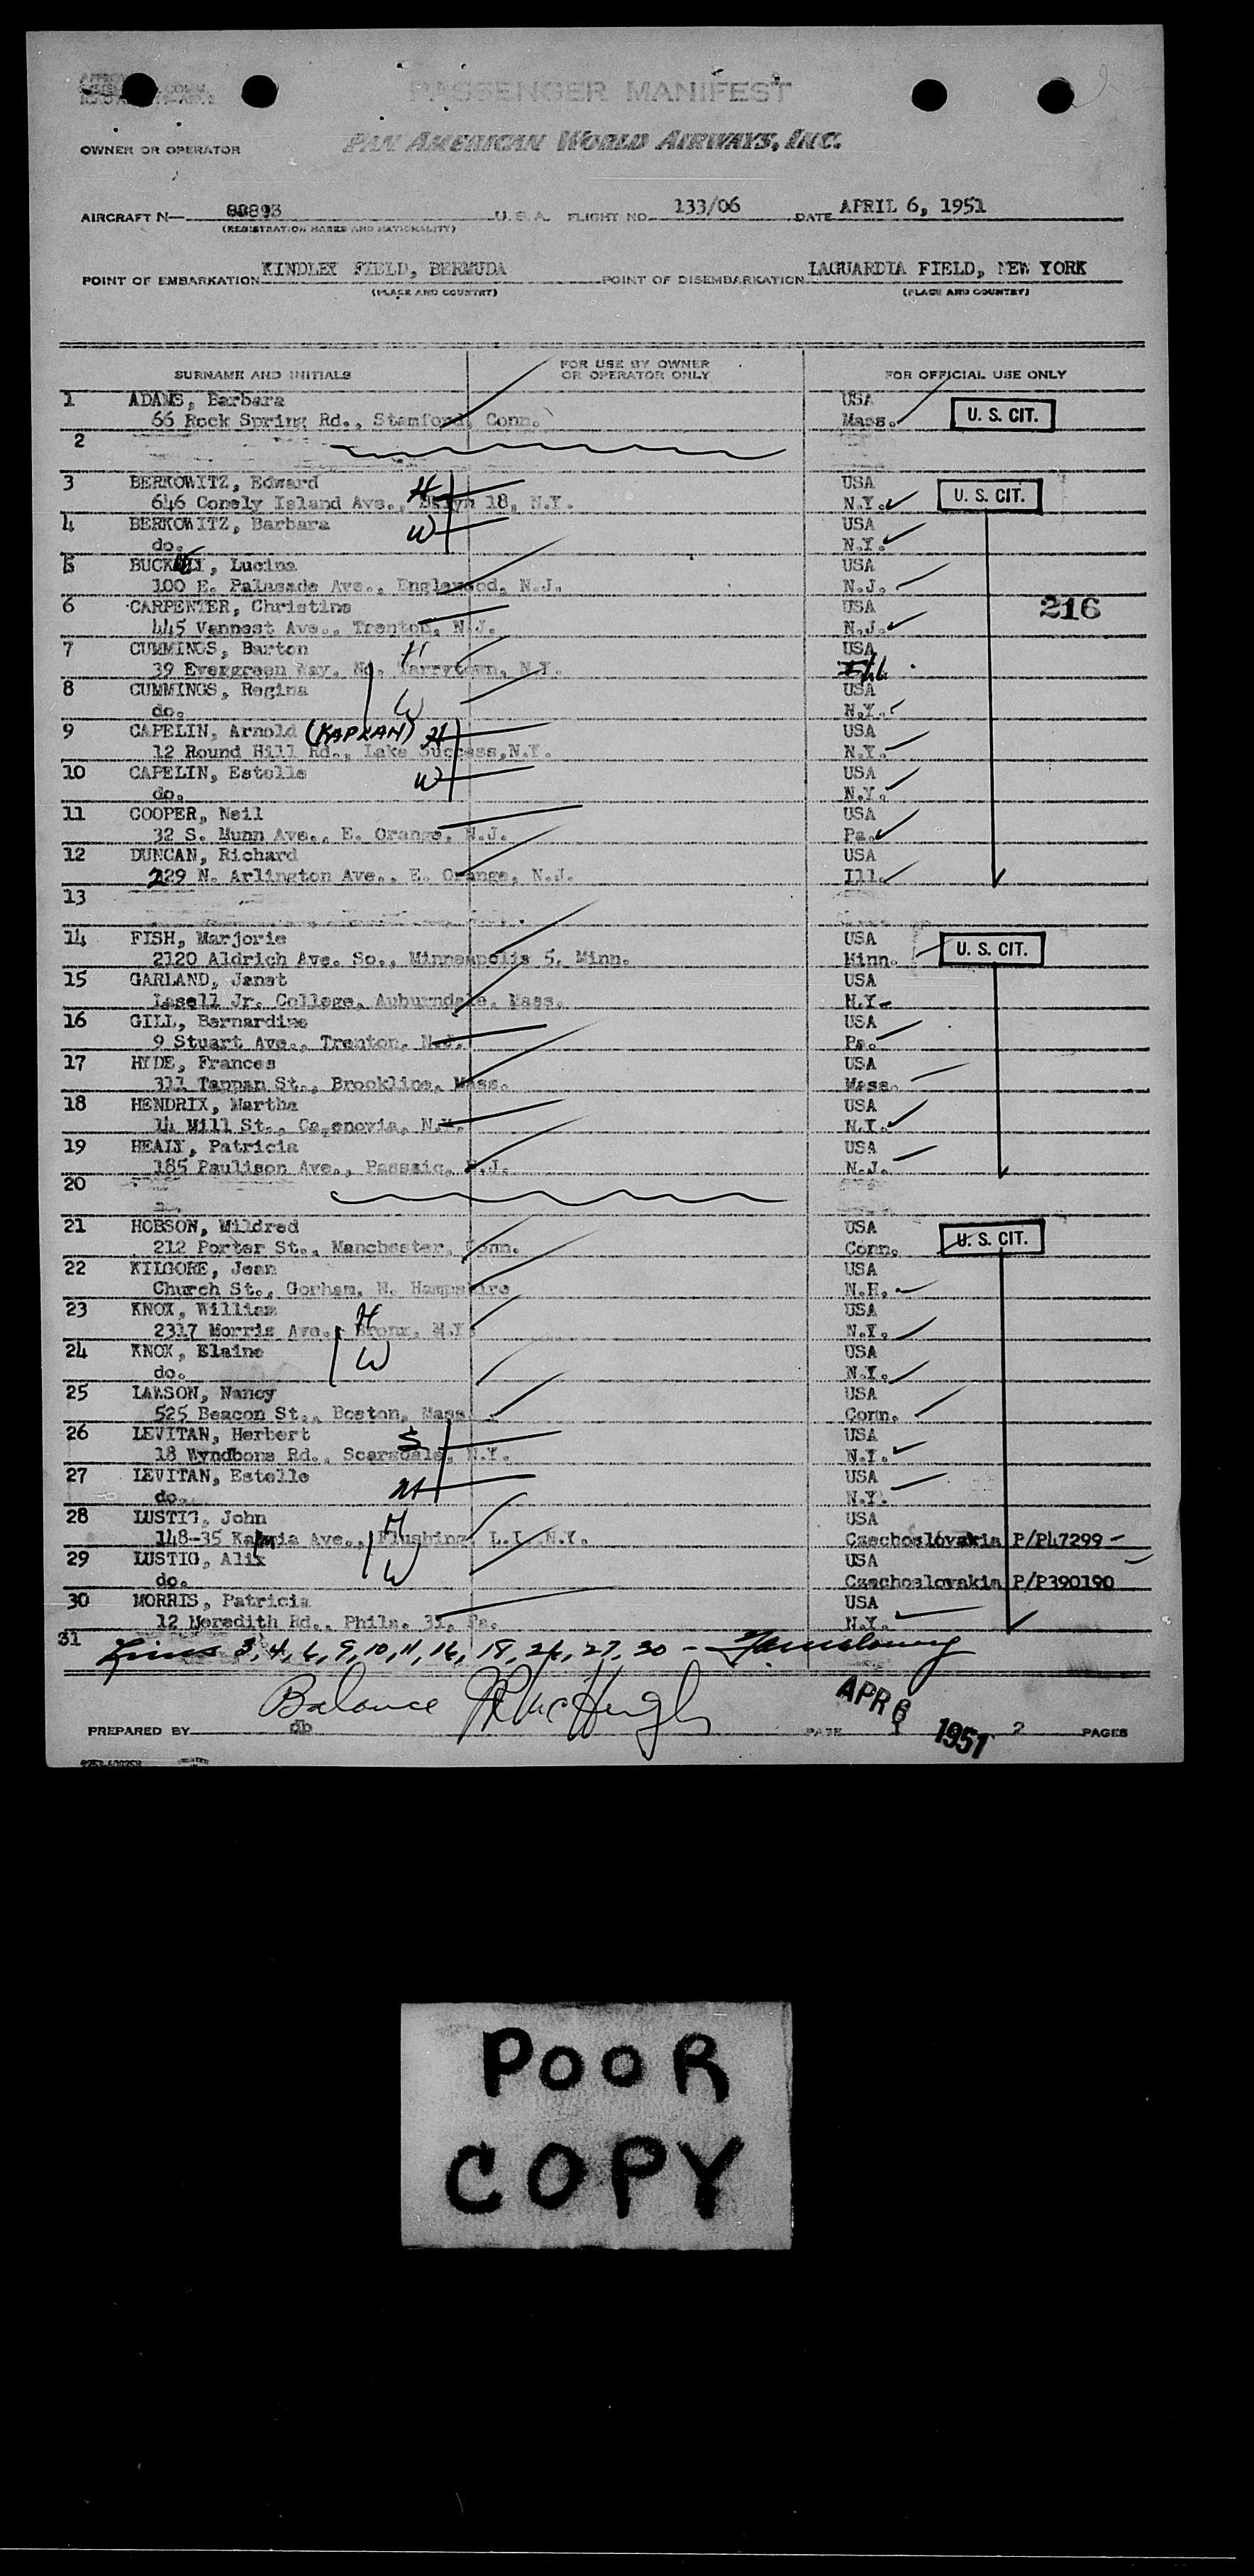 PASSENGER MANIFEST
PAN AMERICAN WORLD AIRWAYS, INC.
OWNER OR OPERATOR
AIRCRAFT N— U. S. A. FLIGHT NO. 133/06 DATE APRIL 6, 1951
(REGISTRATION MARKS AND NATIONALITY)
POINT OF EMBARKATION KINDLEY FIELD, BERMUDA POINT OF DISEMBARKATION LAGUARDIA FIELD, NEW YORK
(PLACE AND COUNTRY) (PLACE AND COUNTRY)
SURNAME AND INITIALS FOR USE BY OWNER OR OPERATOR ONLY FOR OFFICIAL USE ONLY
1 ADAMS, Barbara USA
66 Rock Spring Rd., Stamford, Conn. Mass. U. S. CIT.
2
3 BERKOWITZ, Edward H USA
646 Conely Island Ave., Bklyn 18, N.Y. N.Y. U. S. CIT.
4 BERKOWITZ, Barbara W USA
do. N.Y.
5 Lucina USA
100 E. Palasade Ave., Englewood, N.J. N.J.
6 CARPENTER, Christine USA 216
445 Vannest Ave., Trenton, N.J. N.J.
7 CUMMINGS, Barton H USA
39 Evergreen Way, No. Tarrytown, N.Y.
8 CUMMINGS, Regina W USA
do. N.Y.
9 CAPELIN, Arnold (KAPLAN) H USA
12 Round Hill Rd., Lake Success, N.Y. N.Y.
10 CAPELIN, Estelle W USA
do. N.Y.
11 COOPER, Neil USA
32 S. Munn Ave., E. Orange, N.J. Pa.
12 DUNCAN, Richard USA
229 N. Arlington Ave., E. Orange, N.J. Ill.
13
14 FISH, Marjorie USA
2120 Aldrich Ave. So., Minneapolis 5, Minn. Minn. U. S. CIT.
15 GARLAND, Janet USA
Lasell Jr. College, Auburndale, Mass. N.Y.
16 GILL, Bernardine USA
9 Stuart Ave., Trenton, N.J. Pa.
17 HYDE, Frances USA
311 Tappan St., Brookline, Mass. Mass.
18 HENDRIX, Martha USA
14 Mill St., Cazenovia, N.Y. N.Y.
19 HEALY, Patricia USA
185 Paulison Ave., Passaic, N.J. N.J.
20
21 HOBSON, Mildred USA
212 Porter St., Manchester, Conn. Conn. U. S. CIT.
22 KILGORE, Jean USA
Church St., Gorham, N. Hampshire N.H.
23 KNOX, William H USA
2317 Morris Ave., Bronx, N.Y. N.Y.
24 KNOX, Elaine W USA
do. N.Y.
25 LAWSON, Nancy USA
525 Beacon St., Boston, Mass. Conn.
26 LEVITAN, Herbert S USA
18 Wyndbone Rd., Scarsdale, N.Y. N.Y.
27 LEVITAN, Estelle M USA
do. N.Y.
28 LUSTIG, John H USA
148-35 Ave., Flushing, L.I. N.Y. Czechoslovakia P/P47299
29 LUSTIG, Alix W USA
do. Czechoslovakia P/P390190
30 MORRIS, Patricia USA
12 Meredith Rd., Phila. 31, Pa. N.Y.
31 Lines 3, 4, 6, 9, 10, 11, 16, 18, 26, 27, 30 -
Balance McHugh APR 6 1951
PREPARED BY db PAGE 1 2 PAGES
POOR
COPY